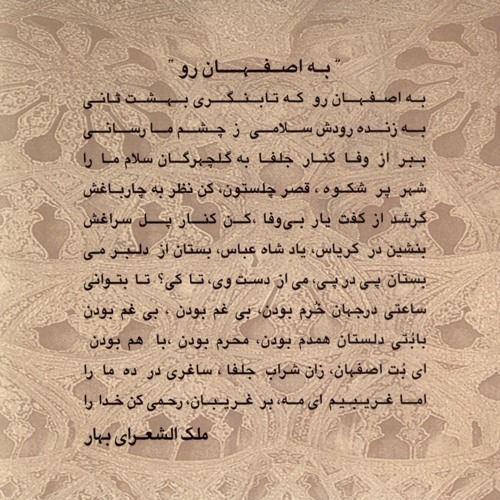 " به اصفهان رو "
به اصفهان رو که تا بنگری بهشت ثانی
به زنده رودش سلامی ز چشم ما رسانی
ببر از وفا کنار جلفا به گلچهرگان سلام ما را
شهر پر شکوه ، قصر چلستون، کن نظر به چارباغش
گرشد از کفت یار بی‌وفا ،کن کنار پل سراغش
بنشین در کریاس، یاد شاه عباس، بستان از دلبر می
بستان پی در پی، می از دست وی، تا کی؟ تا بتوانی
ساعتی درجهان خُرم بودن، بی غم بودن ، بی غم بودن
با بُتی دلستان همدم بودن، محرم بودن ،با هم بودن
ای بُت اصفهان، زان شراب جلفا ، ساغری در ده ما را
اما غریبیم ای مه، بر غریبان، رحمی کن خدا را
ملک الشعرای بهار